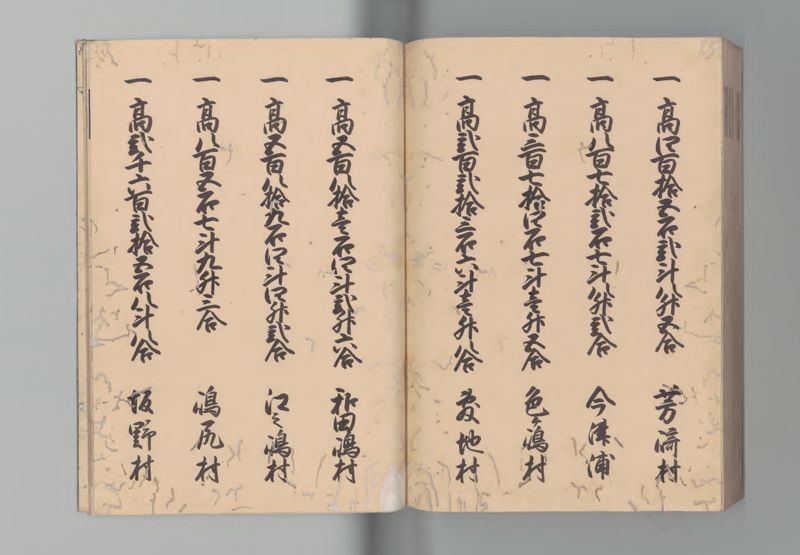 一 高四百拾五石弐斗八升五合 芳崎村
一 高八百七拾弐石七斗八升弐合 今津浦
一 高三百七拾四石七斗壱升五合 色ヶ嶋村
一 高弐百弐拾三石六斗壱升八合 敷地村
一 高五百八拾壱石四斗弐升六合 和田嶋村
一 高五百八拾九石四斗四升弐合 江之嶋村
一 高八百五石七斗九升三合 嶋尻村
一 高弐千六百弐拾五石八斗八合 坂野村